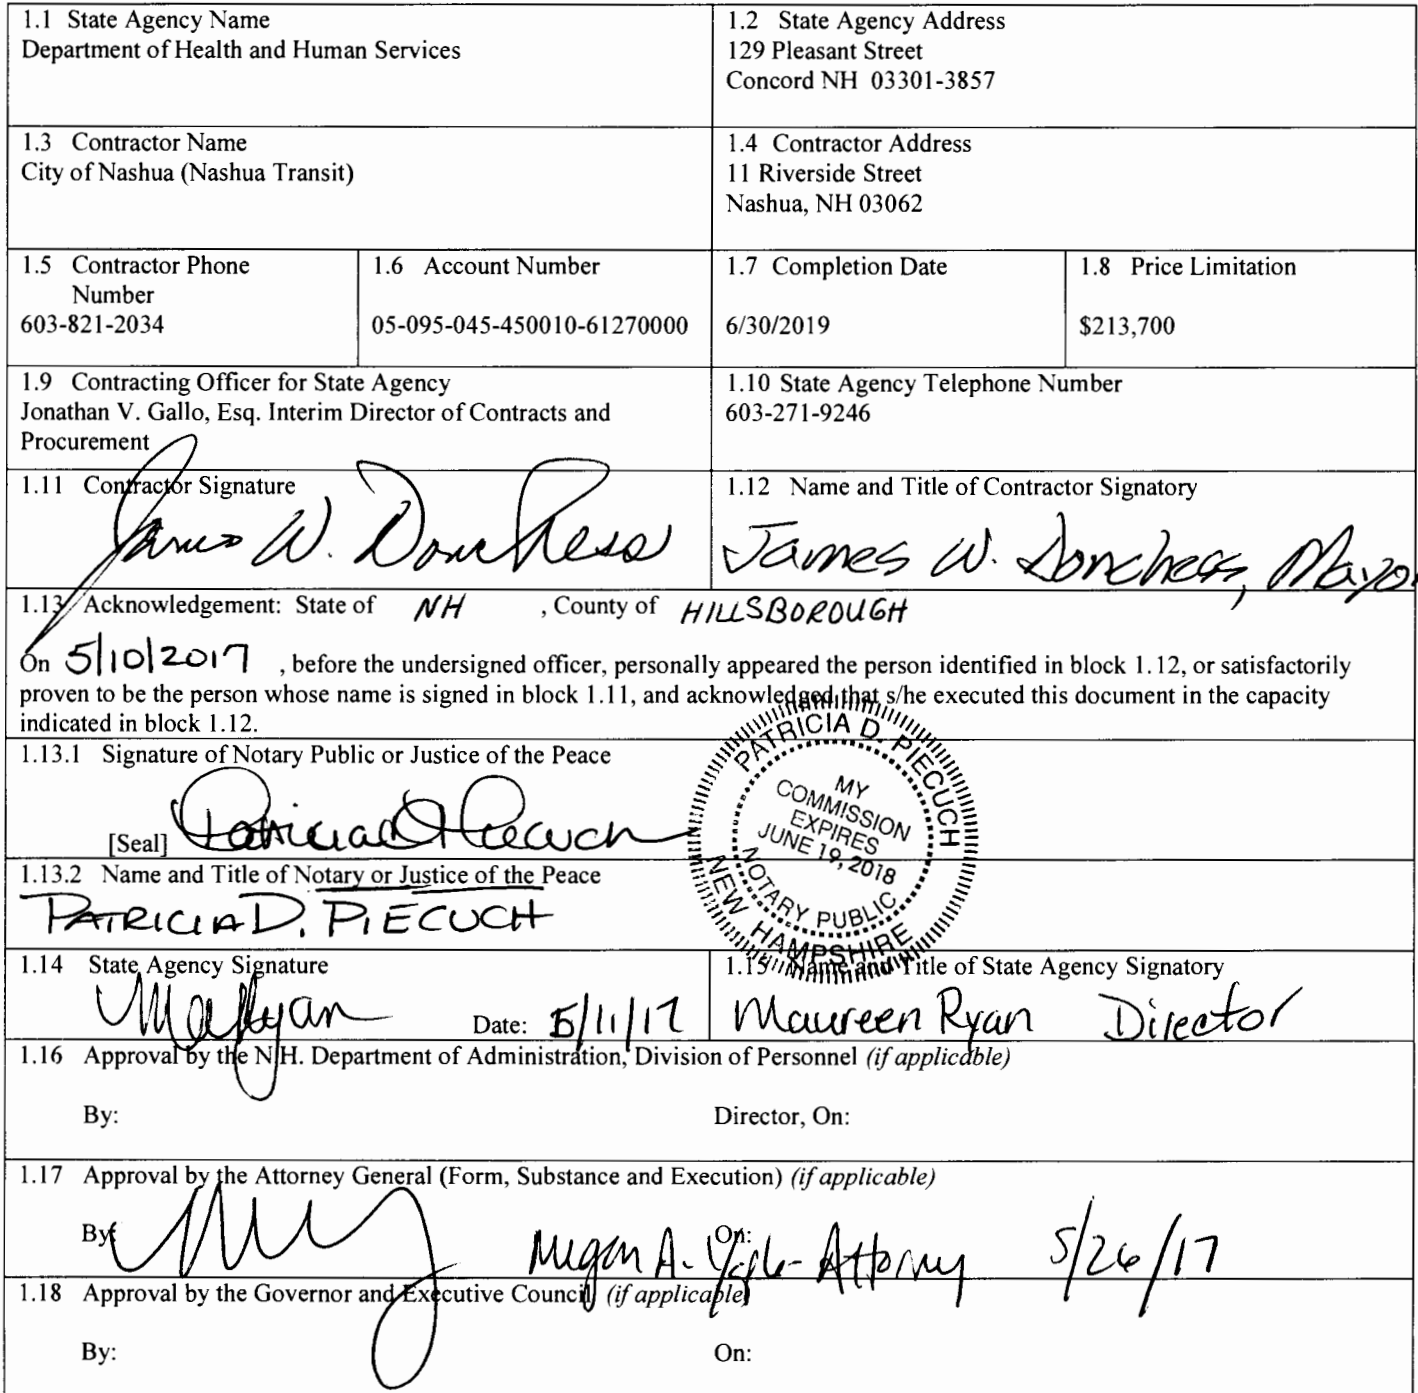 1.1 State Agency Name
Department of Health and Human Services
1.2 State Agency Address
129 Pleasant Street
Concord NH 03301-3857
1.3 Contractor Name
City of Nashua (Nashua Transit)
1.4 Contractor Address
11 Riverside Street
Nashua, NH 03062
1.5 Contractor Phone
Number
603-821-2034
1.6 Account Number
05-095-045-450010-61270000
1.7 Completion Date
6/30/2019
1.8 Price Limitation
$213,700
1.9 Contracting Officer for State Agency
Jonathan V. Gallo, Esq. Interim Director of Contracts and
Procurement
1.10 State Agency Telephone Number
603-271-9246
1.11 Contractor Signature
James W. Donchess
1.12 Name and Title of Contractor Signatory
James W. Donchess, Mayor
1.13 Acknowledgement: State of NH , County of HILLSBOROUGH
On 5/10/2017 , before the undersigned officer, personally appeared the person identified in block 1.12, or satisfactorily
proven to be the person whose name is signed in block 1.11, and acknowledged that s/he executed this document in the capacity
indicated in block 1.12.
1.13.1 Signature of Notary Public or Justice of the Peace
[Seal] Patricia D Piecuch
PATRICIA D. PIECUCH
MY
COMMISSION
EXPIRES
JUNE 19, 2018
NOTARY PUBLIC
NEW HAMPSHIRE
1.13.2 Name and Title of Notary or Justice of the Peace
PATRICIA D. PIECUCH
1.14 State Agency Signature
Date: 5/11/17
1.15 Name and Title of State Agency Signatory
Maureen Ryan Director
1.16 Approval by the N.H. Department of Administration, Division of Personnel (if applicable)
By: Director, On:
1.17 Approval by the Attorney General (Form, Substance and Execution) (if applicable)
By: On:
Megan A. - Attorney 5/26/17
1.18 Approval by the Governor and Executive Council (if applicable)
By: On: